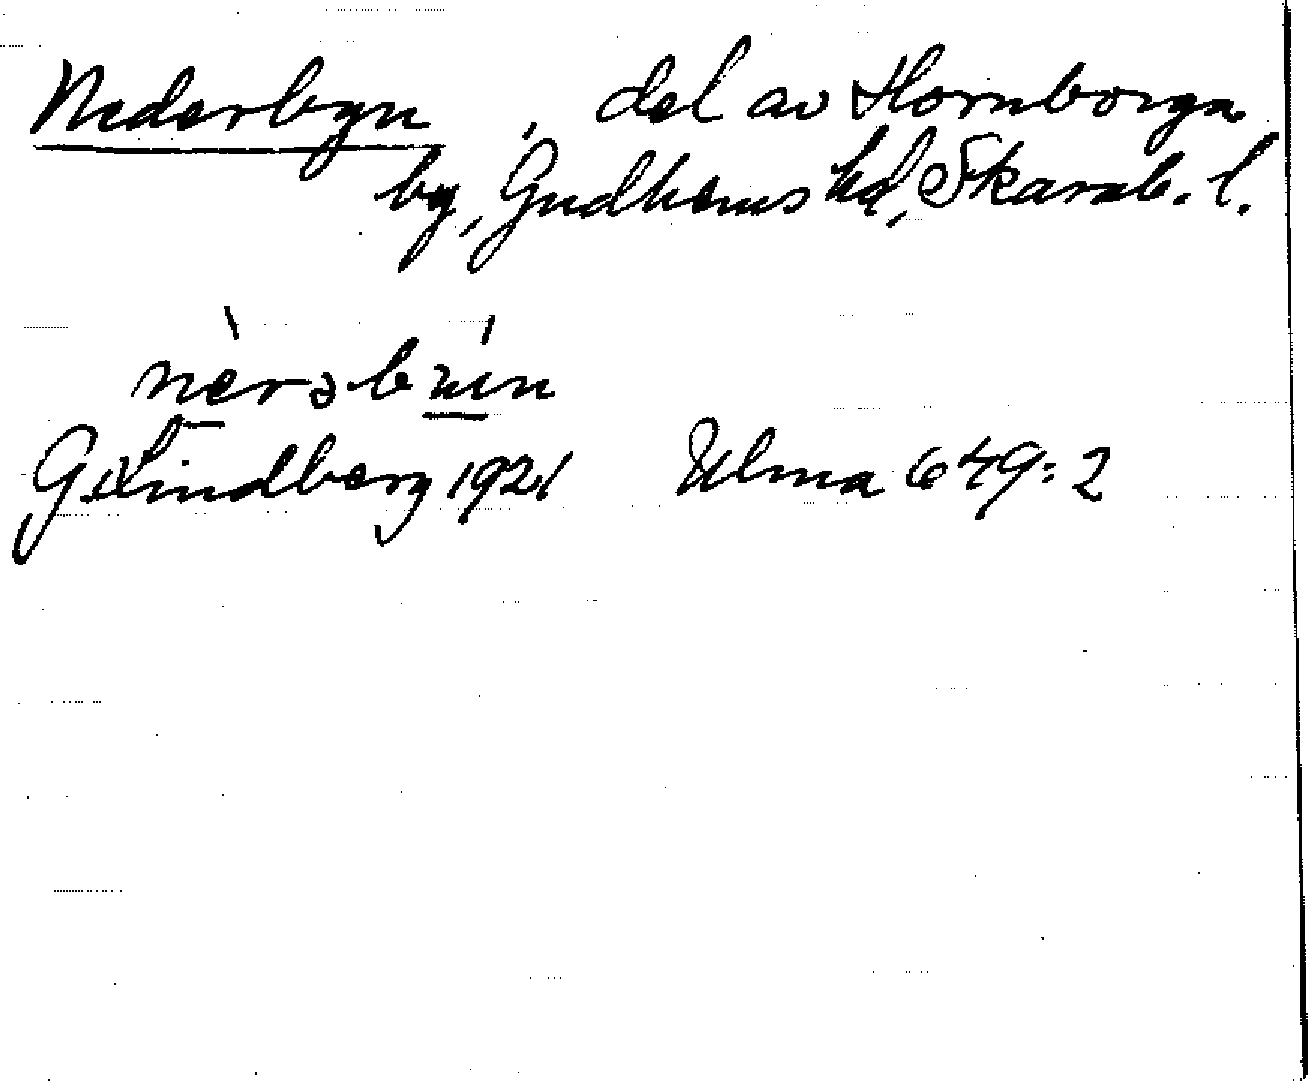 Nederbyn, del av Hornborga
by, Gudhems hd, Skarab. l.
nèrəbýn
G. Lindberg 1921 Ulma 649:2